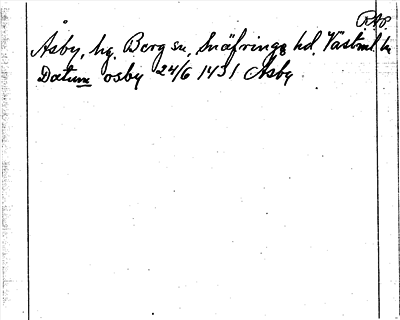 RAP.
Åsby, hg. Berg sn, Snäfringe hd, Västml. l.
Datum osby 24/6 1431 Åsby